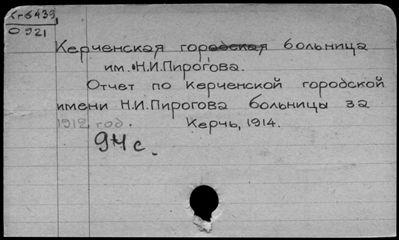 Хг6439
О 921
Керченская городская больница
им. Н.И.Пирогова.
Отчет по Керченской городской
имени Н.И.Пирогова больницы за
1912 год. Керчь, 1914.
94 с.